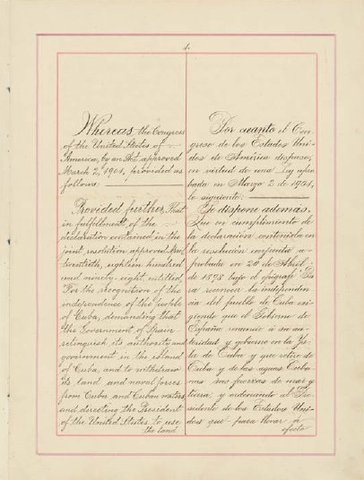 1.
Whereas the Congress
of the United States of
America, by an Act approved
March 2, 1901, provided as
follows:
Provided further, That
in fulfillment of the
declaration contained in the
joint resolution approved April
twentieth, eighteen hundred
and ninety eight, entitled,
"For the recognition of the
independence of the people
of Cuba, demanding that
the Government of Spain
relinquish its authority and
government in the island
of Cuba, and to withdraw
its land and naval forces
from Cuba and Cuban waters
and directing the President
of the United States to use
the land
Por cuanto el Con-
greso de los Estados Uni-
dos de América dispuso,
en virtud de una Ley apro-
bada en Marzo 2 de 1901,
lo siguiente:
Se dispone además,
Que en cumplimiento de
la declaración contenida en
la resolución conjunta a-
probada en 20 de Abril
de 1898 bajo el epígrafe "Pa-
ra reconocer la independen-
cia del pueblo de Cuba exi-
giendo que el Gobierno de
España renuncie á su au-
toridad y gobierno en la Is-
la de Cuba y que retire de
Cuba y de las aguas Cuba-
nas sus fuerzas de mar y
tierra y ordenando al Pre-
sidente de los Estados Uni-
dos que para llevar á
efecto